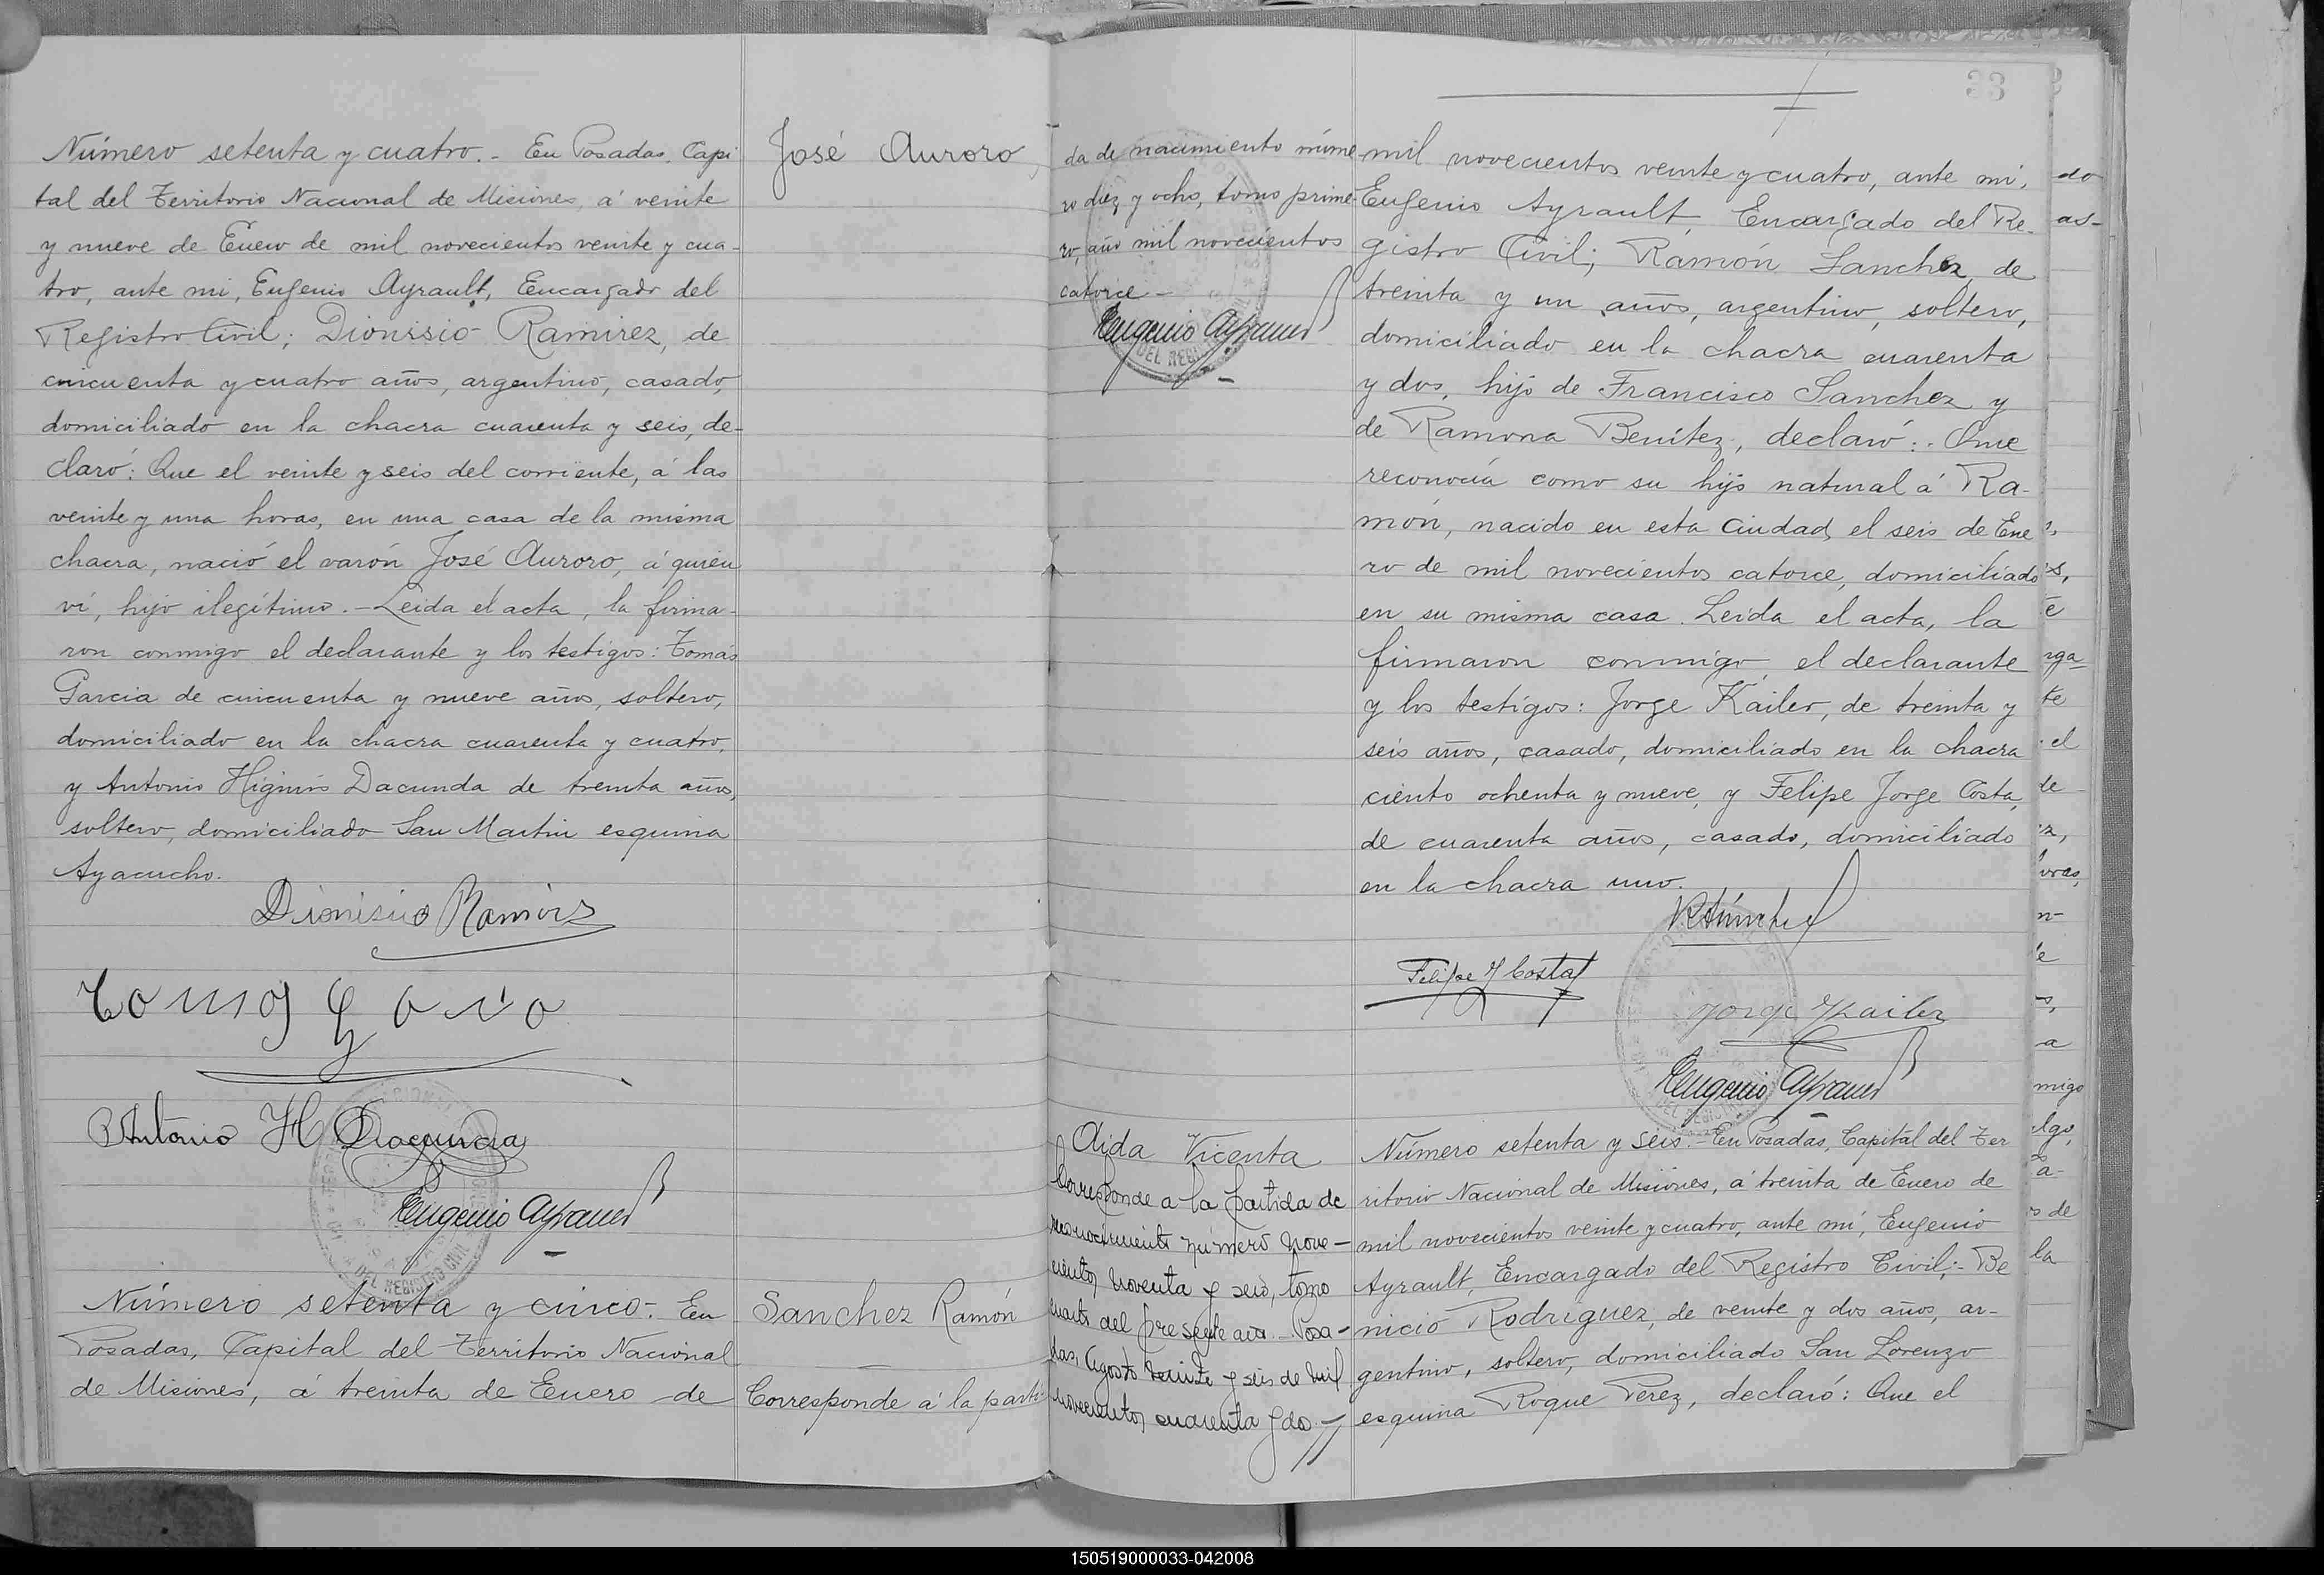 Número setenta y cuatro.- En Posadas, Capi
tal del Territorio Nacional de Misiones, á veinte
y nueve de Enero de mil novecientos veinte y cua-
tro, ante mi, Eugenio Ayrault, Encargado del
Registro Civil; Dionisio Ramirez, de
cincuenta y cuatro años, argentino, casado,
domiciliado en la chacra cuarenta y seis, de-
claró: Que el veinte y seis del corriente, á las
veinte y una horas, en una casa de la misma
chacra, nació el varón José Auroro, á quien
ví, hijo ilegítimo.- Leida el acta, la firma-
ron conmigo el declarante y los testigos: Tomás
Garcia de cincuenta y nueve años, soltero,
domiciliado en la chacra cuarenta y cuatro,
y Antonio Higinio Dacunda de treinta años,
soltero, domiciliado San Martin esquina
Ayacucho.
Dionisio Ramirez
Antonio H Dacunda
Eugenio Ayrault
Número setenta y cinco.- En
Posadas, Capital del Territorio Nacional
de Misiones, á treinta de Enero de
José Auroro
Sanchez Ramón
Corresponde á la parti
da de nacimiento núme
ro diez y ocho, tomo prime-
ro, año mil novecientos
catorce.-
Eugenio Ayrault
DEL REGISTRO CIVIL
33
mil novecientos veinte y cuatro, ante mi,
Eugenio Ayrault, Encargado del Re-
gistro Civil; Ramón Sanchez, de
treinta y un años, argentino, soltero,
domiciliado en la chacra cuarenta
y dos, hijo de Francisco Sanchez y
de Ramona Benítez, declaró: Que
reconocía como su hijo natural á Ra-
món, nacido en esta Ciudad, el seis de Ene
ro de mil novecientos catorce, domiciliado
en su misma casa. Leida el acta, la
firmaron conmigo, el declarante
y los testigos: Jorge Kailer, de treinta y
seis años, casado, domiciliado en la chacra
ciento ochenta y nueve, y Felipe Jorge Costa,
de cuarenta años, casado, domiciliado
en la chacra uno.
RSánchez
Felipe J Costa
Jorge Kailer
Eugenio Ayrault
Aida Vicenta
Corresponde a la partida de
reconocimiento número nove-
cientos noventa y seis, tomo
cuarto del presente año.- Posa-
das, Agosto veinte y seis de mil
novecientos cuarenta y dos.-
Número setenta y seis.- En Posadas, Capital del Ter
ritorio Nacional de Misiones, á treinta de Enero de
mil novecientos veinte y cuatro, ante mí, Eugenio
Ayrault, Encargado del Registro Civil;- Be
nicio Rodríguez, de veinte y dos años, ar-
gentino, soltero, domiciliado San Lorenzo
esquina Roque Pérez, declaró: Que el
150519000033-042008